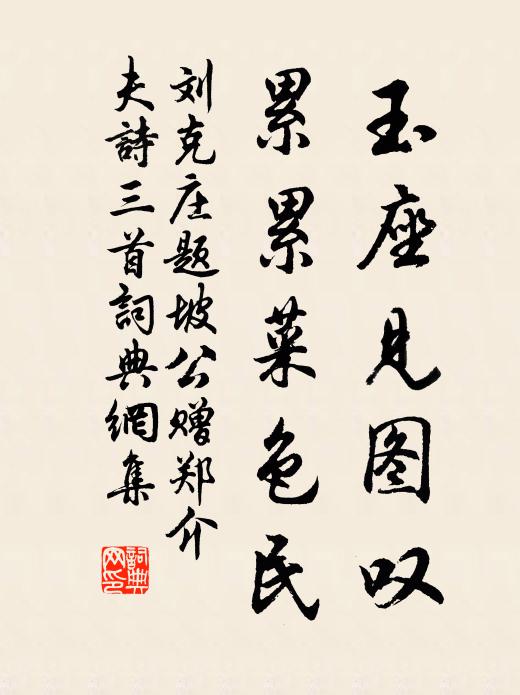 玉座见图叹
累累菜色民
刘克庄题坡公赠郑介
夫詩三首詞典網集
詞典网印